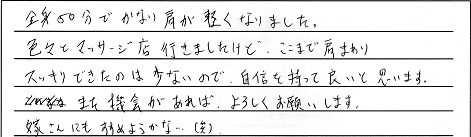 全身60分でかなり肩が軽くなりました。
色々とマッサージ店行きましたけど、ここまで肩まわり
スッキリできたのは少ないので、自信を持って良いと思います。
また機会があれば、よろしくお願いします。
嫁さんにもすすめようかな…(笑)